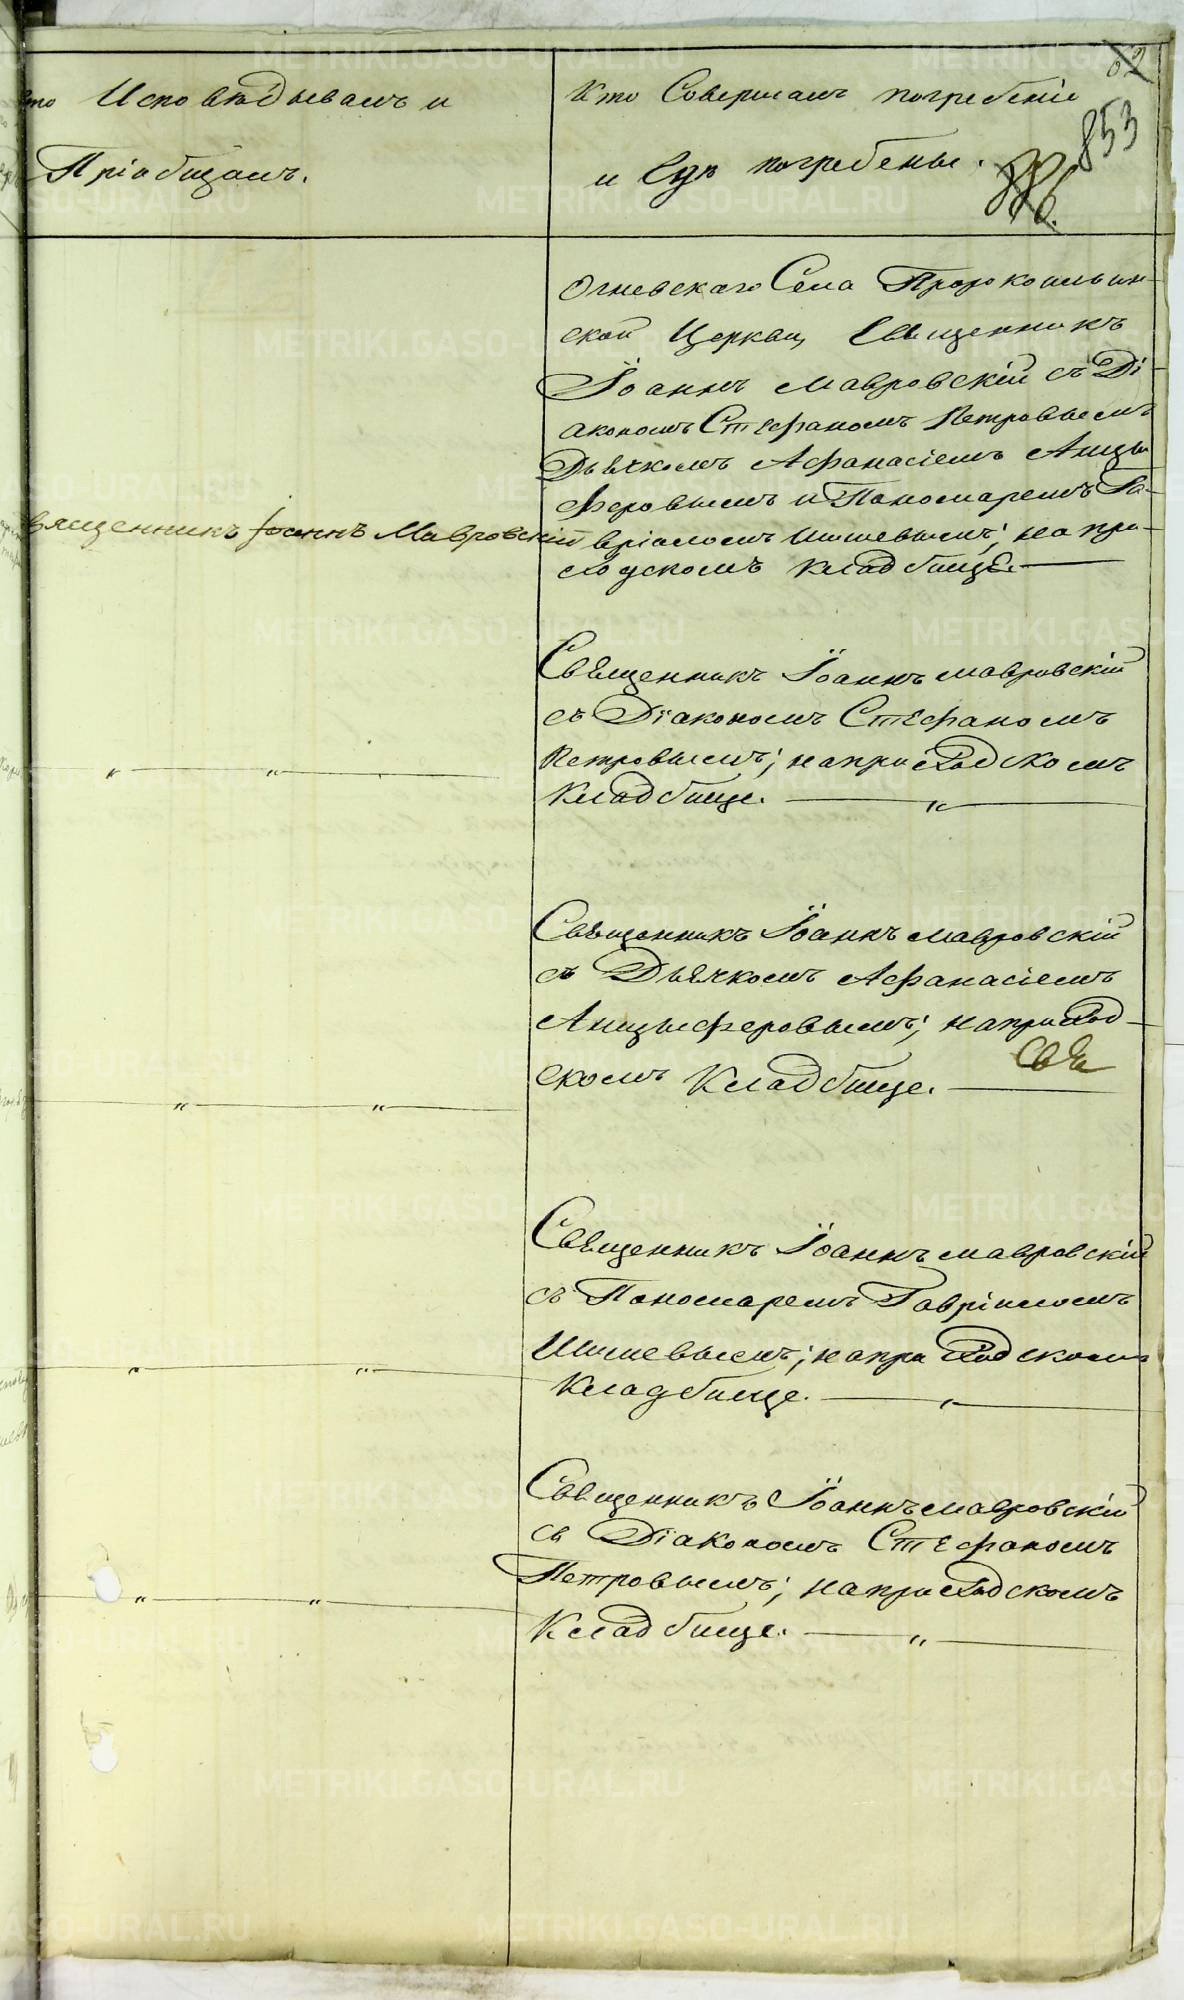 62
853
886.
кто Исповѣдывалъ и
Пріобщалъ.
Кто Совершалъ погребеніе
и гдѣ погребены.
Огневскаго Села Пророкоильин-
ской Церкви, Священникъ
Іоаннъ Мавровскій съ Ді-
акономъ Стефаномъ Петровымъ
Дьячкомъ Афанасіемъ Анцы
феровымъ и Пономаремъ Га-
Священникъ Іоаннъ Мавровскій
вріиломъ Шишевымъ; на при-
ходскомъ кладбище.
Священникъ Іоаннъ Мавровскій
съ Діакономъ Стефаномъ
Петровымъ; на приходскомъ
Кладбище. — „ —
— „ — „ —
Священникъ Іоаннъ Мавровскій
съ Дьячкомъ Афанасіемъ
Анцыферовымъ; на приход-
скомъ Кладбище. —
Свя
— „ — „ —
Священникъ Іоаннъ Мавровскій
съ Пономаремъ Гавріиломъ
Шишевымъ; на приходскомъ
Кладбище. — „ —
— „ — „ —
Священникъ Іоаннъ Мавровскій
съ Діакономъ Стефаномъ
Петровымъ; на приходскомъ
Кладбище. — „ —
— „ — „ —
METRIKI.GASO-URAL.RU